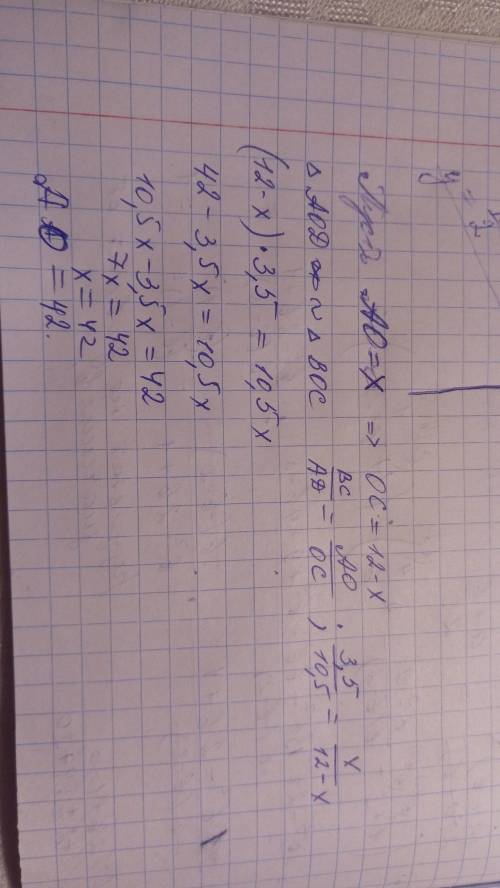 Пусть AO = x => OC = 12 - x
△ AOD ∾ △ BOC   BC/AD = AO/OC , 3,5/10,5 = x/12 - x
(12 - x) · 3,5 = 10,5x
42 - 3,5x = 10,5x
10,5x - 3,5x = 42
7x = 42
x = 42
AO = 42.